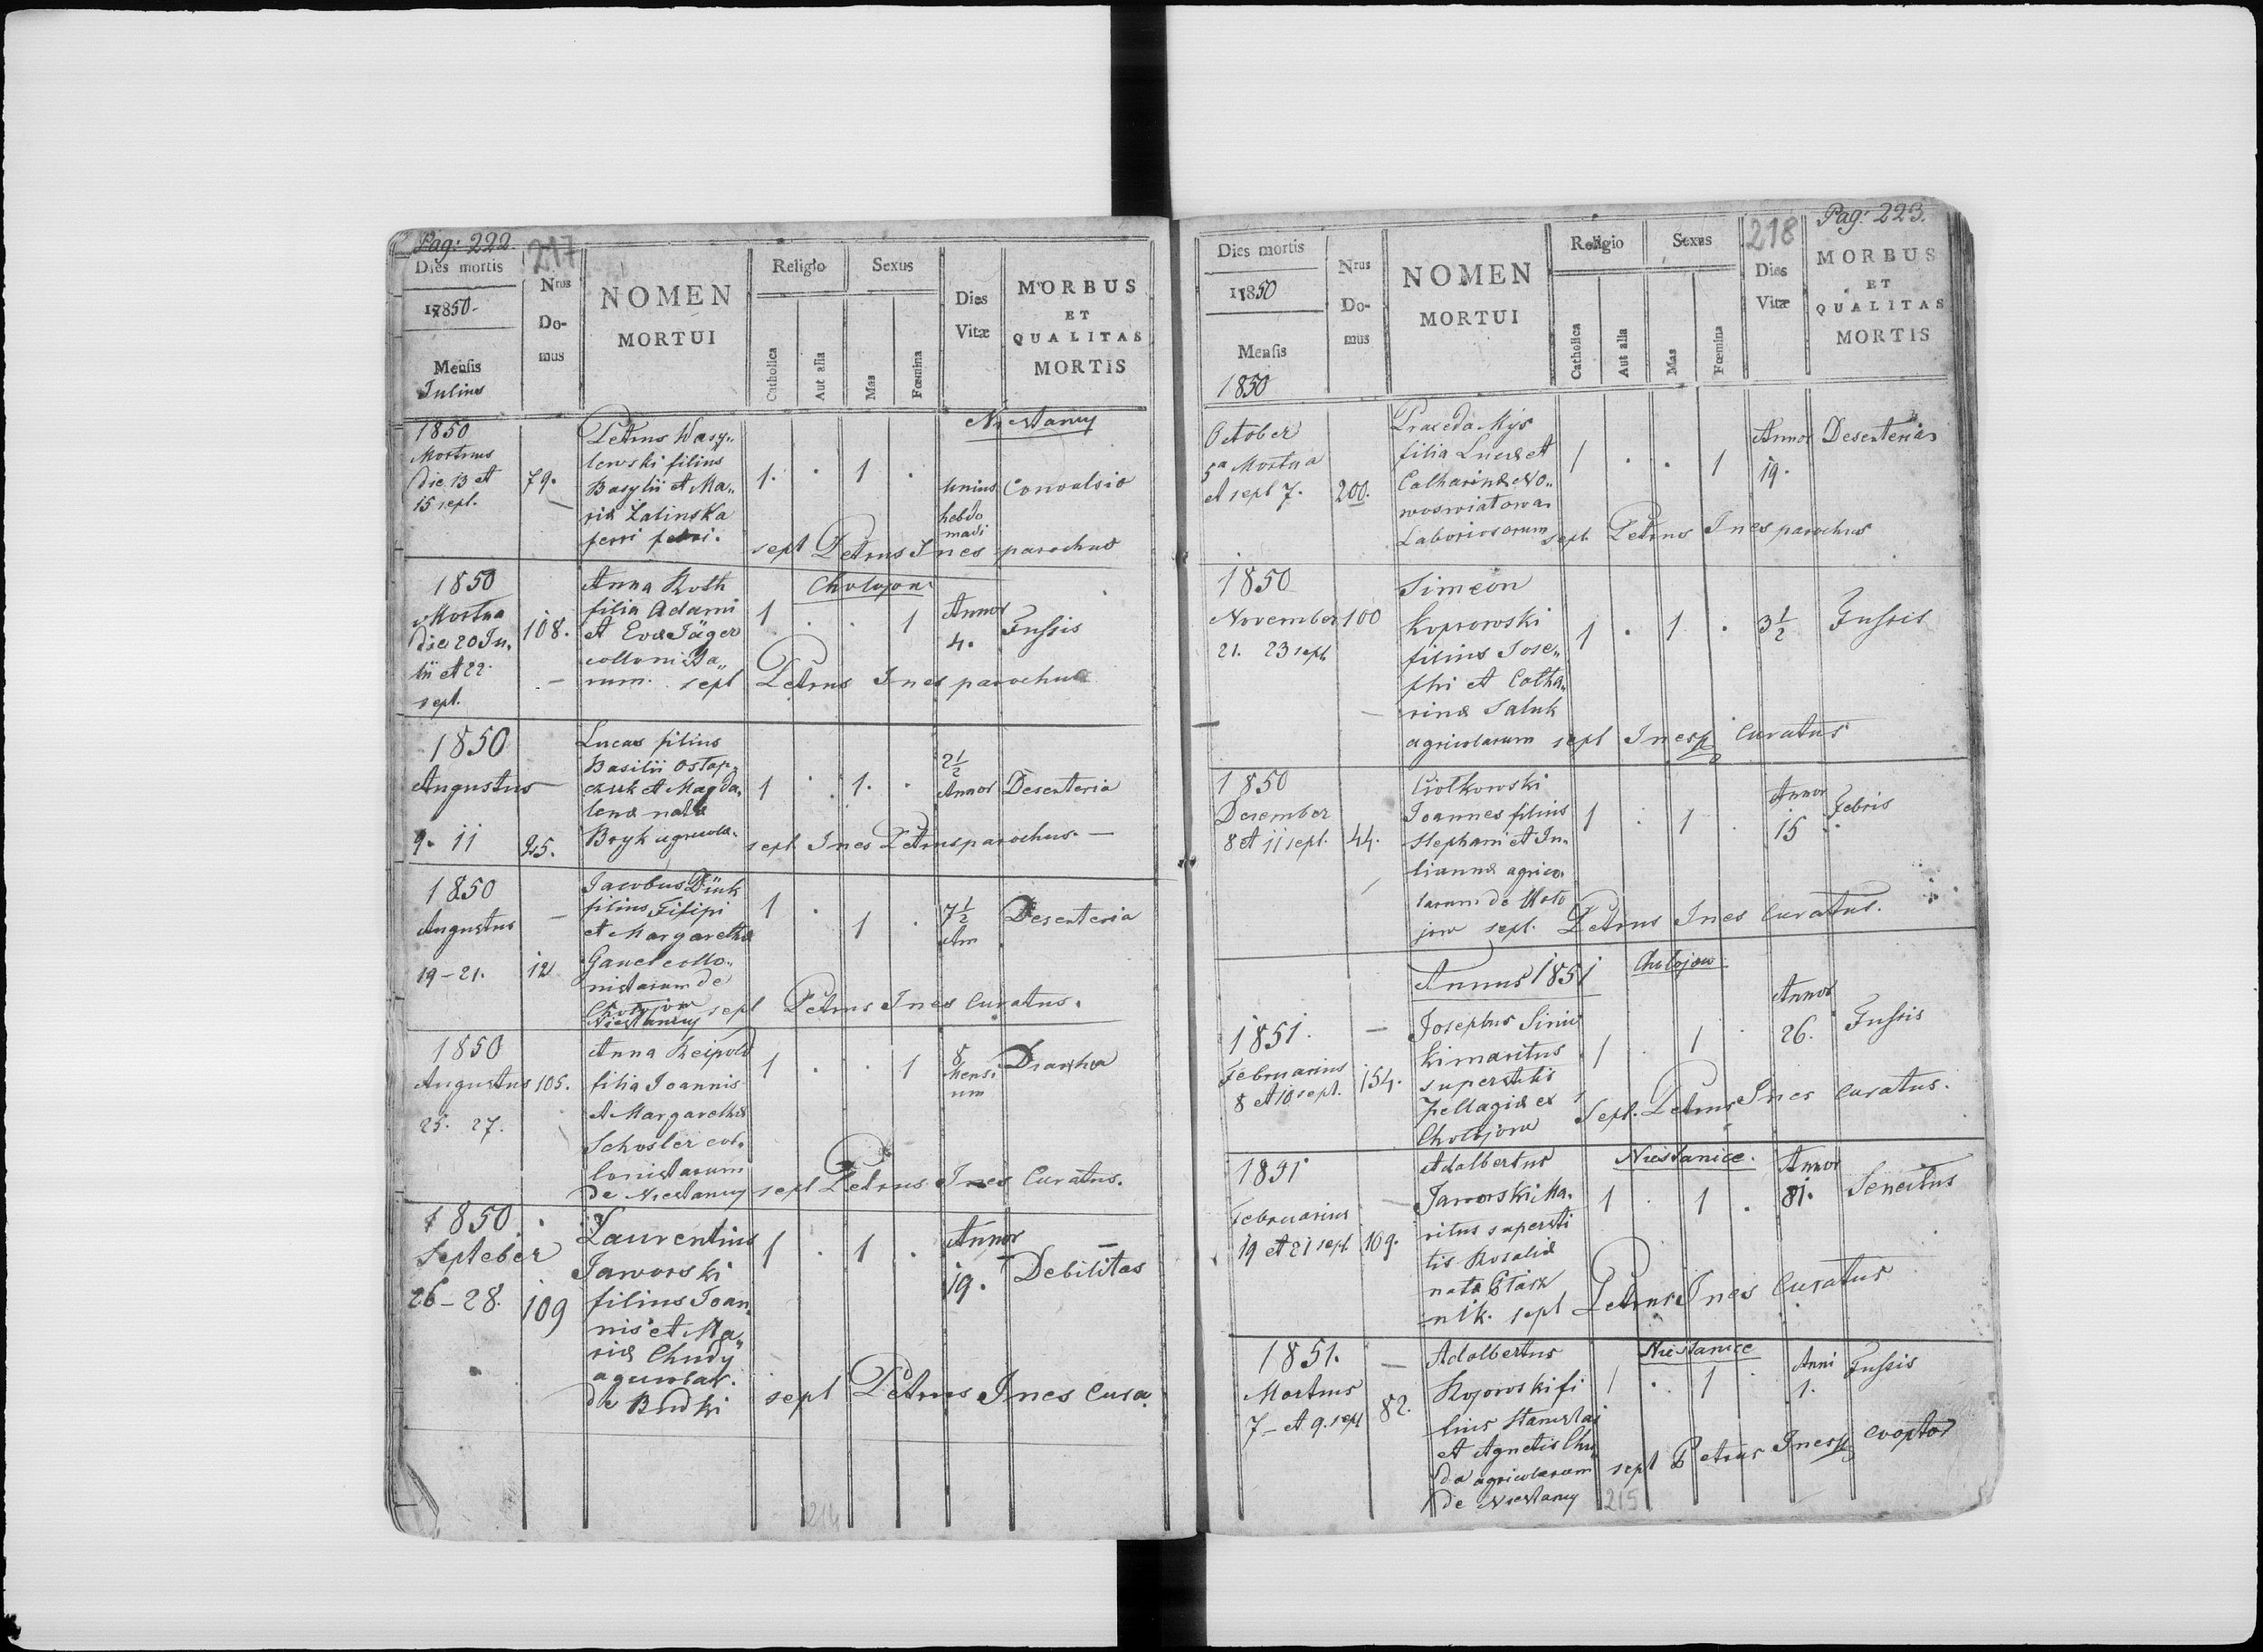 Pag: 222.
217
Dies mortis
Nrus
Do-
mus
NOMEN
MORTUI
Religio
Sexus
Catholica
Aut alia
Mas
Fœmina
Dies
Vitæ
MORBUS
ET
QUALITAS
MORTIS
1850
Mensis
Julius
1850
Mortuus
die 13 et
15 sept.
79.
Petrus Wasy„
lewski filius
Basylii et Ma„
riæ Zalinska
1. . 1 .
unius
hebdo
madi
Convulsio
sept Petrus Ines parochus
1850
Mortua
die 20 Ju„
lii et 22
sept.
108.
Anna Roth
filia Adami
et Evæ Jäger
collonista„
rum. sept Petrus Ines parochus
Cholojow
1 . . 1
Annor
4.
Tussis
1850
Augustus
9. 11
25.
Lucas filius
Basilii Ostap„
czuk et Magda„
lenæ natæ
Bryk agricola.
1 . 1. .
2½
Annor
Desenteria
sept Ines Petrus parochus. —
1850
Augustus
19-21.
12
Jacobus Dünk
filius Filipi
et Margarethæ
Ganel collo„
nistarum de
Cholojow
Niestanicy sept Petrus Ines Curatus.
1 . 1 .
7½
Ann
Desenteria
1850
Augustus
25. 27.
105.
Anna Reipold
filia Joannis
et Margarethæ
Schosler col„
lonistarum
de Niestanicy sept Petrus Ines Curatus.
1 . . 1
8
mensi
um
Diarrhea
1850.
Septeber
26-28.
109
Laurentius
Jaworski
filius Joan„
nis et Ma„
riæ Chudy
agricolar.
de Budki sept Petrus Ines Cura.
1 . 1 .
Annor
19.
Debilitas
214
Pag: 223.
218
Dies mortis
Nrus
Do-
mus
NOMEN
MORTUI
Religio
Sexus
Catholica
Aut alia
Mas
Fœmina
Dies
Vitæ
MORBUS
ET
QUALITAS
MORTIS
1850
Mensis
1850
October
5a Mortua
et sept 7.
200.
Praxeda Mys
filia Lucæ et
Catharinæ No„
woswiatowa
Laboriosorum sept Petrus Ines parochus
1 . . 1
Annor
19.
Desenteria
1850
November
21. 23 sept
100
Simeon
Koprowski
filius Jose„
phi et Catha„
rinæ Saluk
agricolarum sept Ines Curatus
1 . 1 .
3½
Tussis
1850
Desember
8 et 11 sept.
44.
Ciolkowski
Joannes filius
Stephani et Ju„
liannæ agrico„
larum de Holo
jow sept. Petrus Ines Curatus.
1 . 1 .
Annor
15
Febris
Annus 1851
Cholojow
1851.
Februarius
8 et 10 sept.
154.
Josephus Sinic
ki maritus
superstitis
Pellagiæ ex
Cholojow Sept. Petrus Ines Curatus.
1 . 1 .
Annor
26.
Tussis
1851
Februarius
19 et 21 sept
109.
Adalbertus
Jaworski Ma„
ritus supersti
tis Rosaliæ
nik. sept Petrus Ines Curatus
Niestanice.
1 . 1 .
Annor
81.
Senectus
1851.
Martius
7- et 9. sept
82.
Adalbertus
Kojorwski fi
lius Stanislai
et Agnetis Chu
da agricolarum
de Niestanicy
Niestanice
1 . 1 .
Anni
1.
Tussis
sept Petrus Ines
215